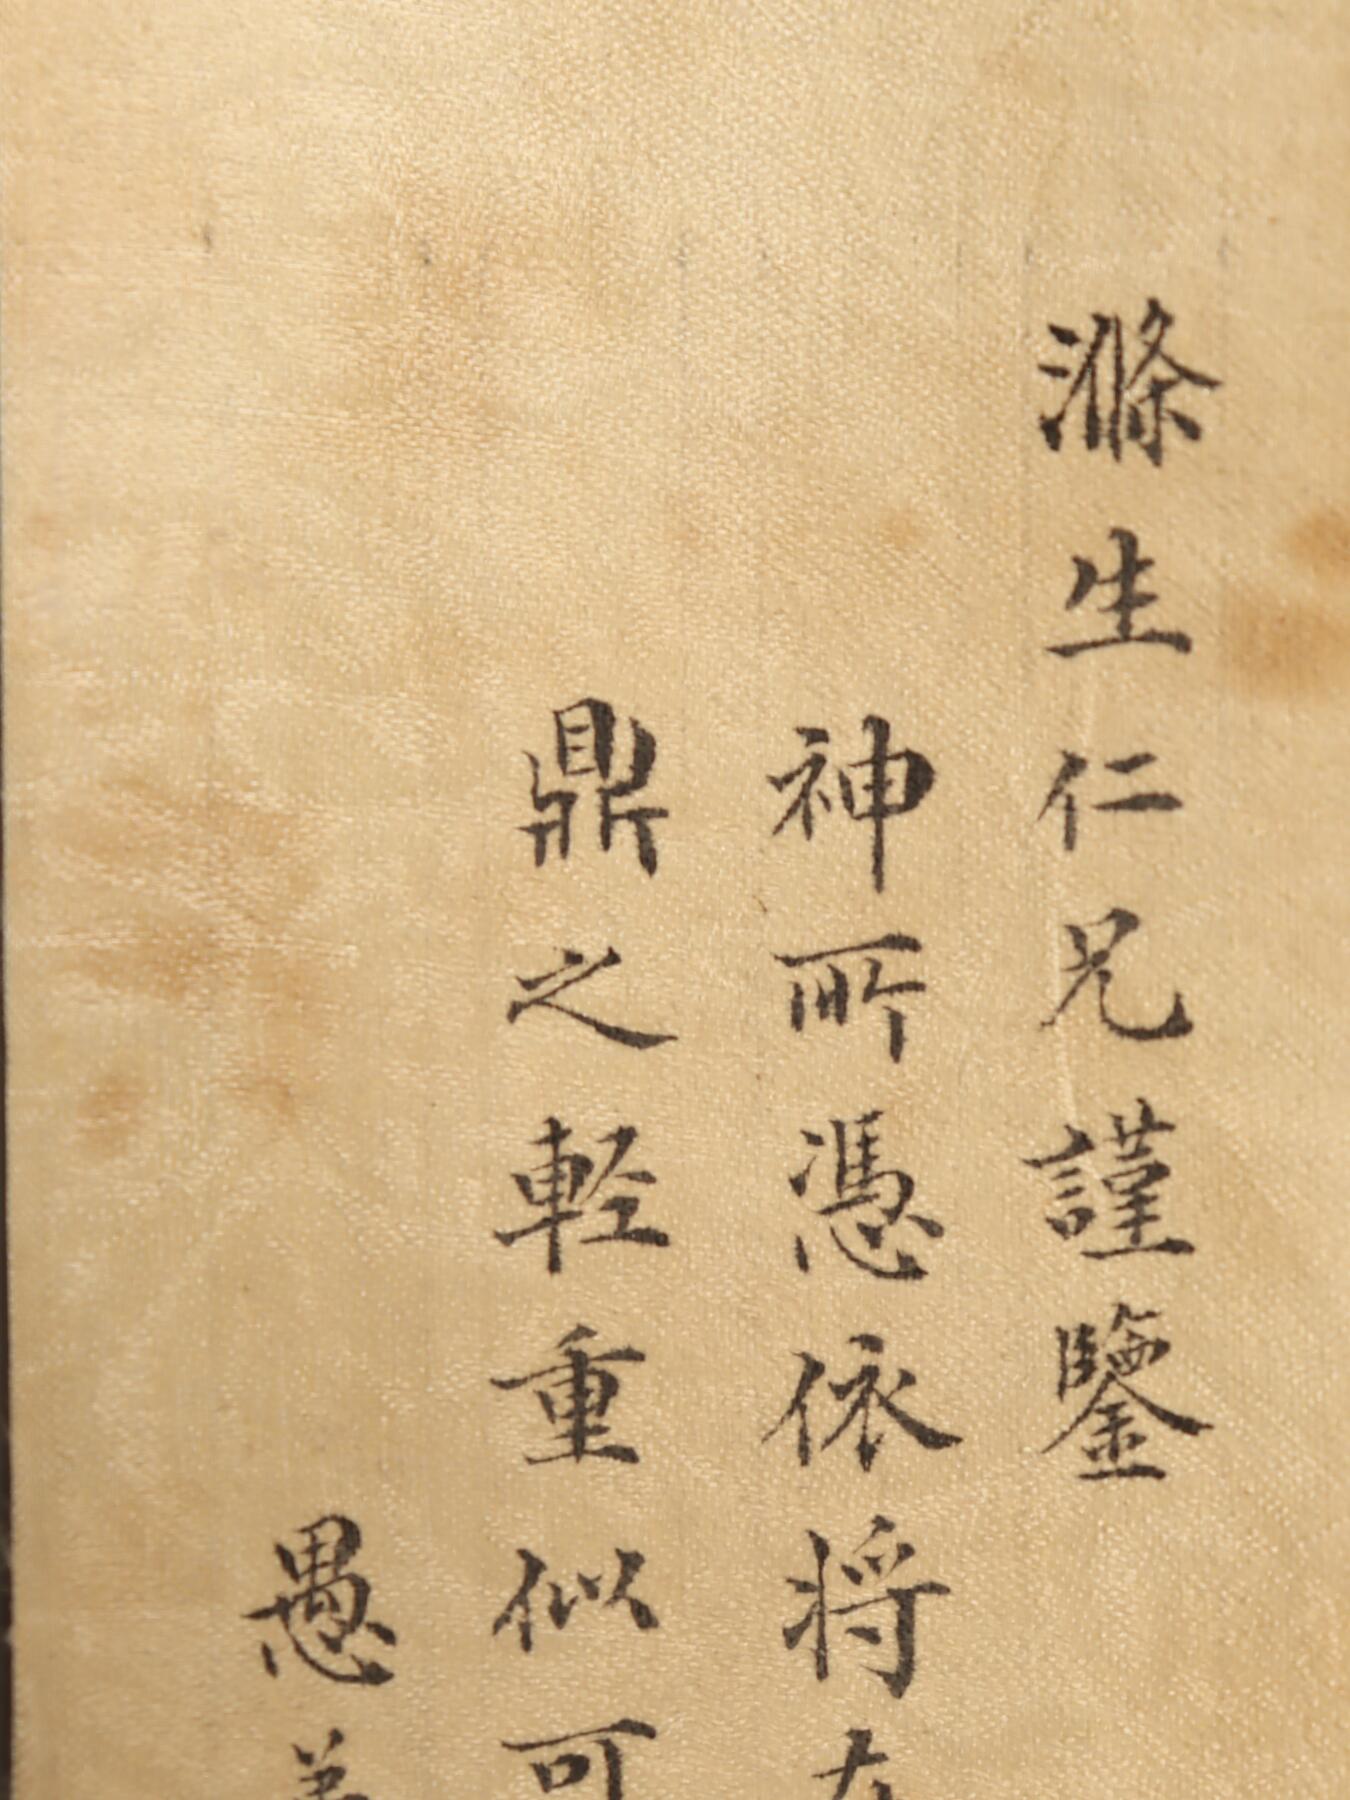 滌生仁兄謹鑒
神所憑依將在
鼎之輕重似可
愚弟